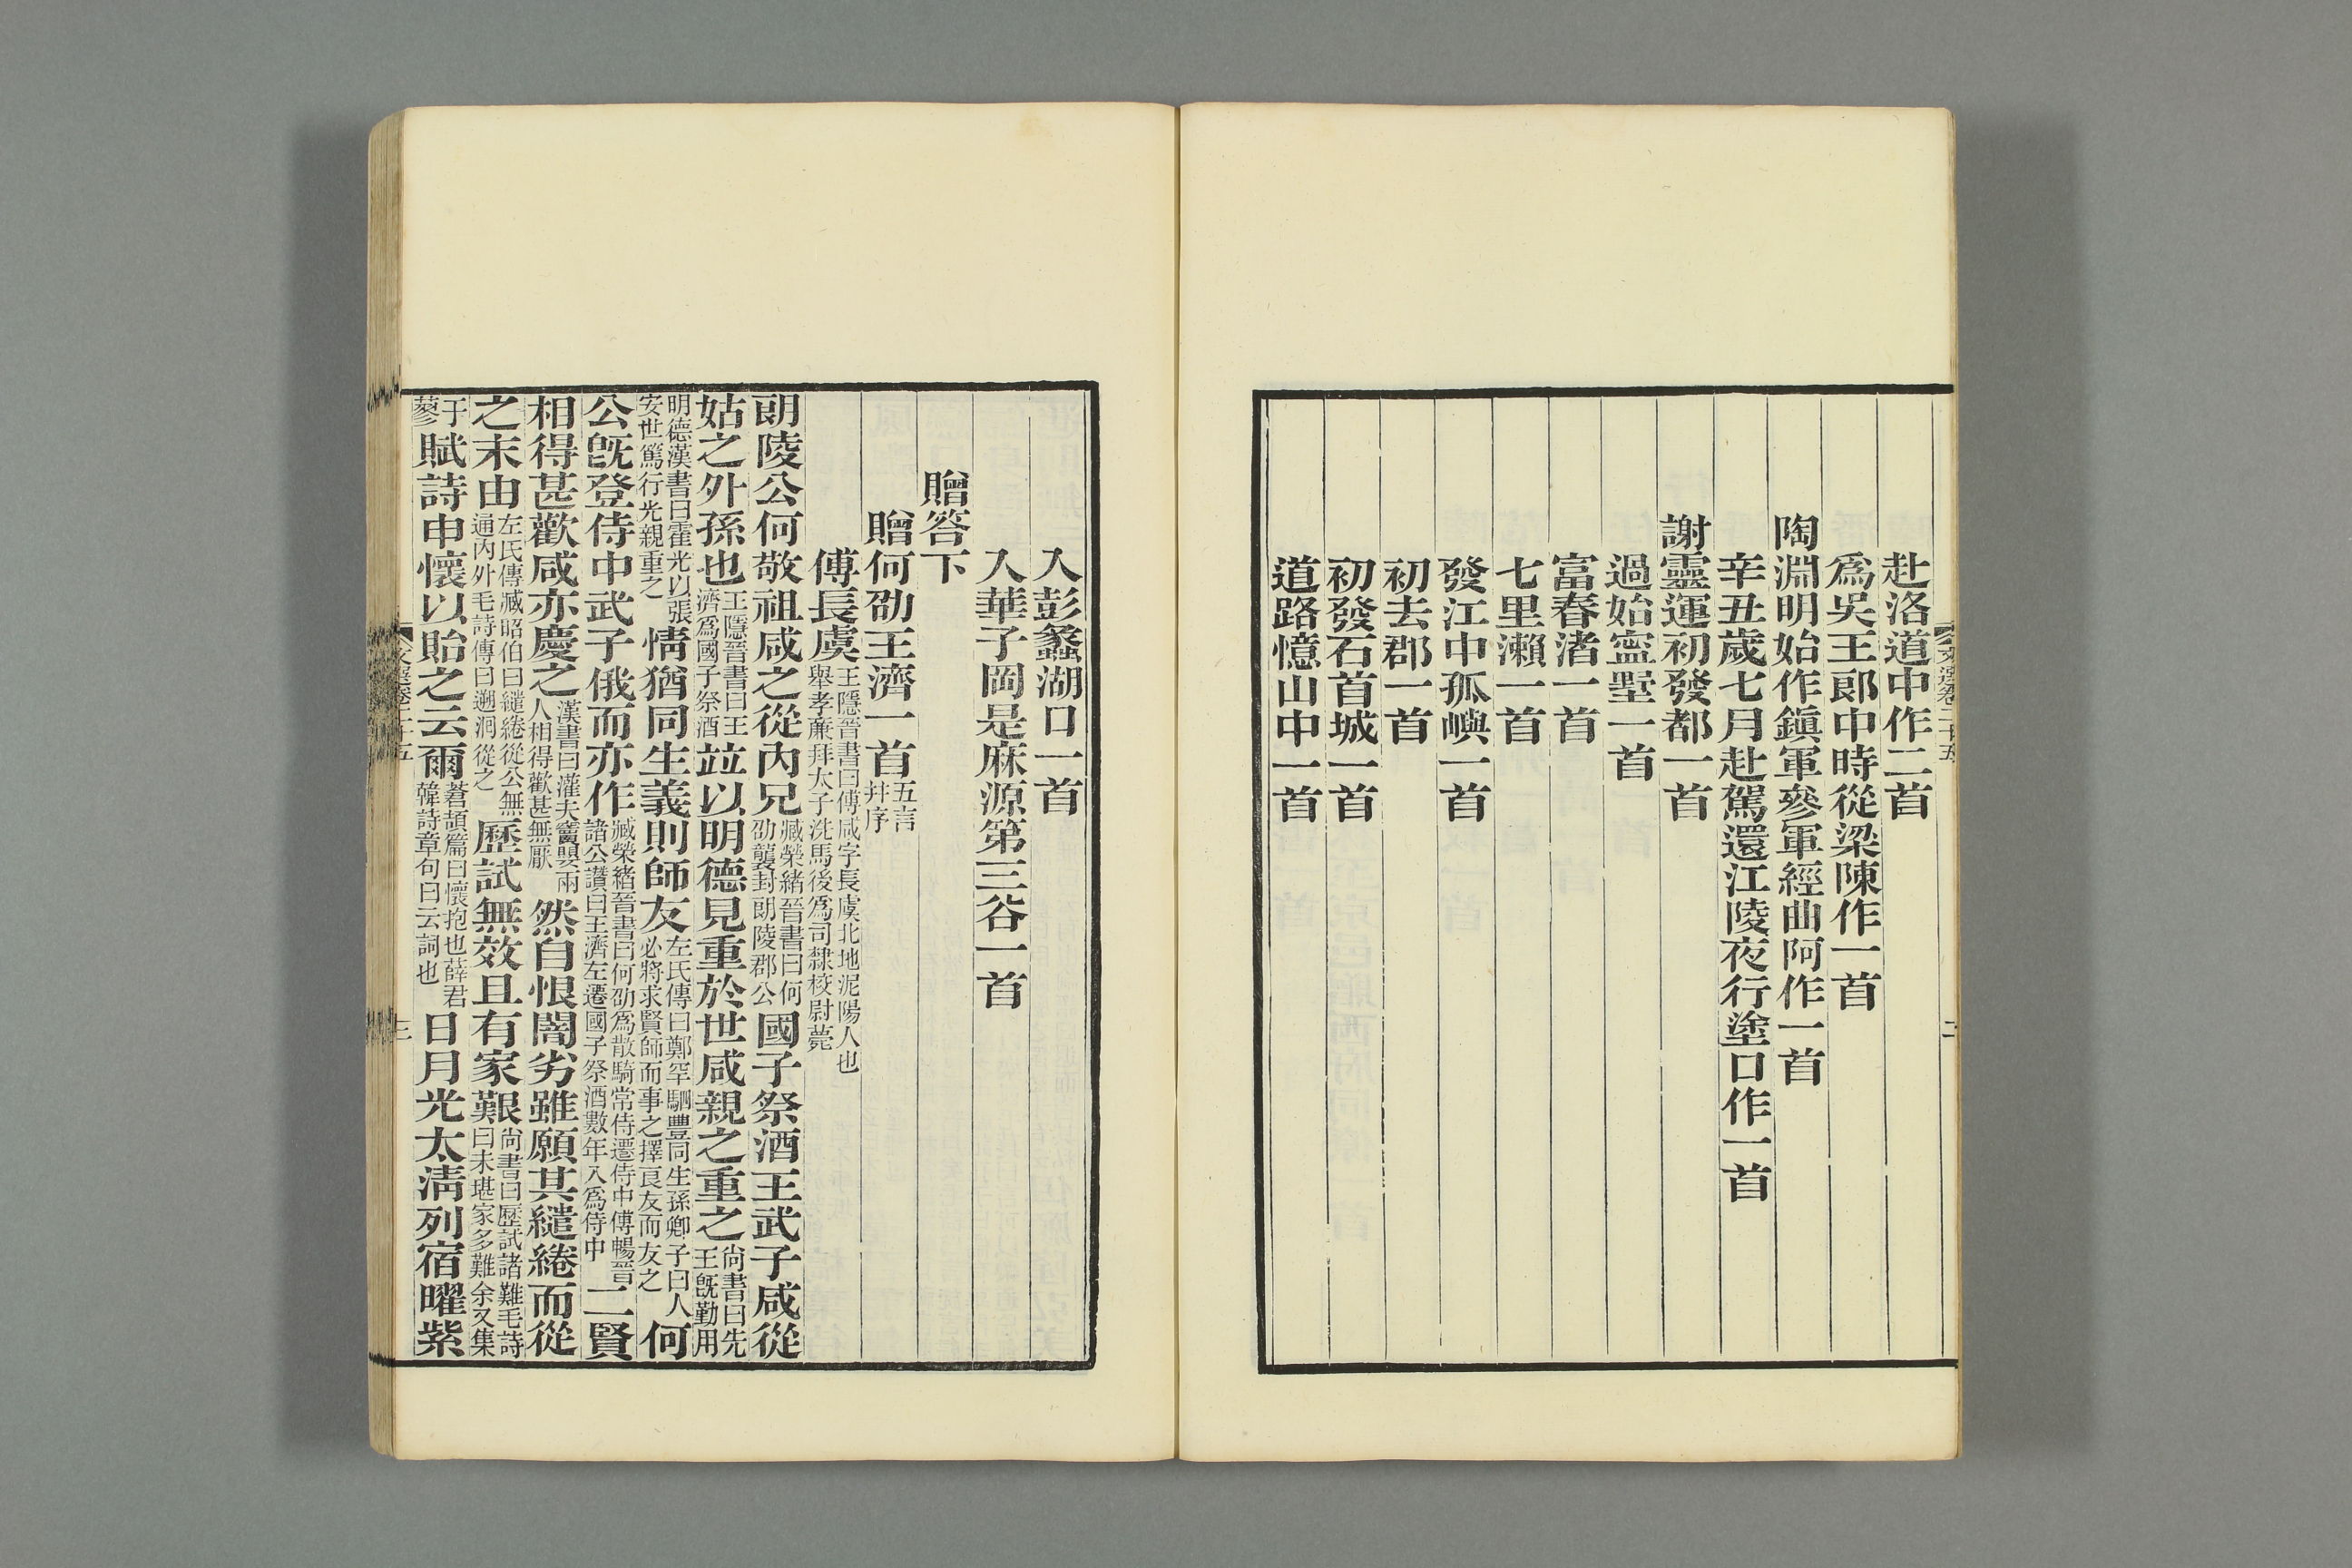 赴洛道中作二首
爲吳王郎中時從梁陳作一首
陶淵明始作鎭軍參軍經曲阿作一首
辛丑歲七月赴駕還江陵夜行塗口作一首
謝靈運初發都一首
過始寧墅一首
富春渚一首
七里瀨一首
發江中孤嶼一首
初去郡一首
初發石首城一首
道路憶山中一首
入彭蠡湖口一首
入華子岡是麻源第三谷一首
贈答下
贈何劭王濟一首五言幷序
傅長虞王隱晉書曰傅咸字長虞北地泥陽人也舉孝廉拜太子洗馬後爲司隸校尉薨
朗陵公何敬祖咸之從內兄臧榮緖晉書曰何劭襲封朗陵郡公國子祭酒王武子咸從
姑之外孫也王隱晉書曰王濟爲國子祭酒竝以明德見重於世咸親之重之尙書曰先王旣勤用
明德漢書曰霍光以張安世篤行光親重之情猶同生義則師友左氏傳曰鄭罕駟豐同生孫卿子曰人必將求賢師而事之擇良友而友之何
公旣登侍中武子俄而亦作臧榮緖晉書曰何劭爲散騎常侍遷侍中傅暢晉諸公讚曰王濟左遷國子祭酒數年入爲侍中二賢
相得甚歡咸亦慶之漢書曰灌夫竇嬰兩人相得歡甚無厭然自恨闇劣雖願其繾綣而從
之末由左氏傳臧昭伯曰繾綣從公無通內外毛詩傳曰遡洄從之歷試無效且有家艱尙書曰歷試諸難毛詩曰未堪家多難余又集
于蓼賦詩申懷以貽之云爾蒼頡篇曰懷抱也薛君韓詩章句曰云詞也日月光太淸列宿曜紫